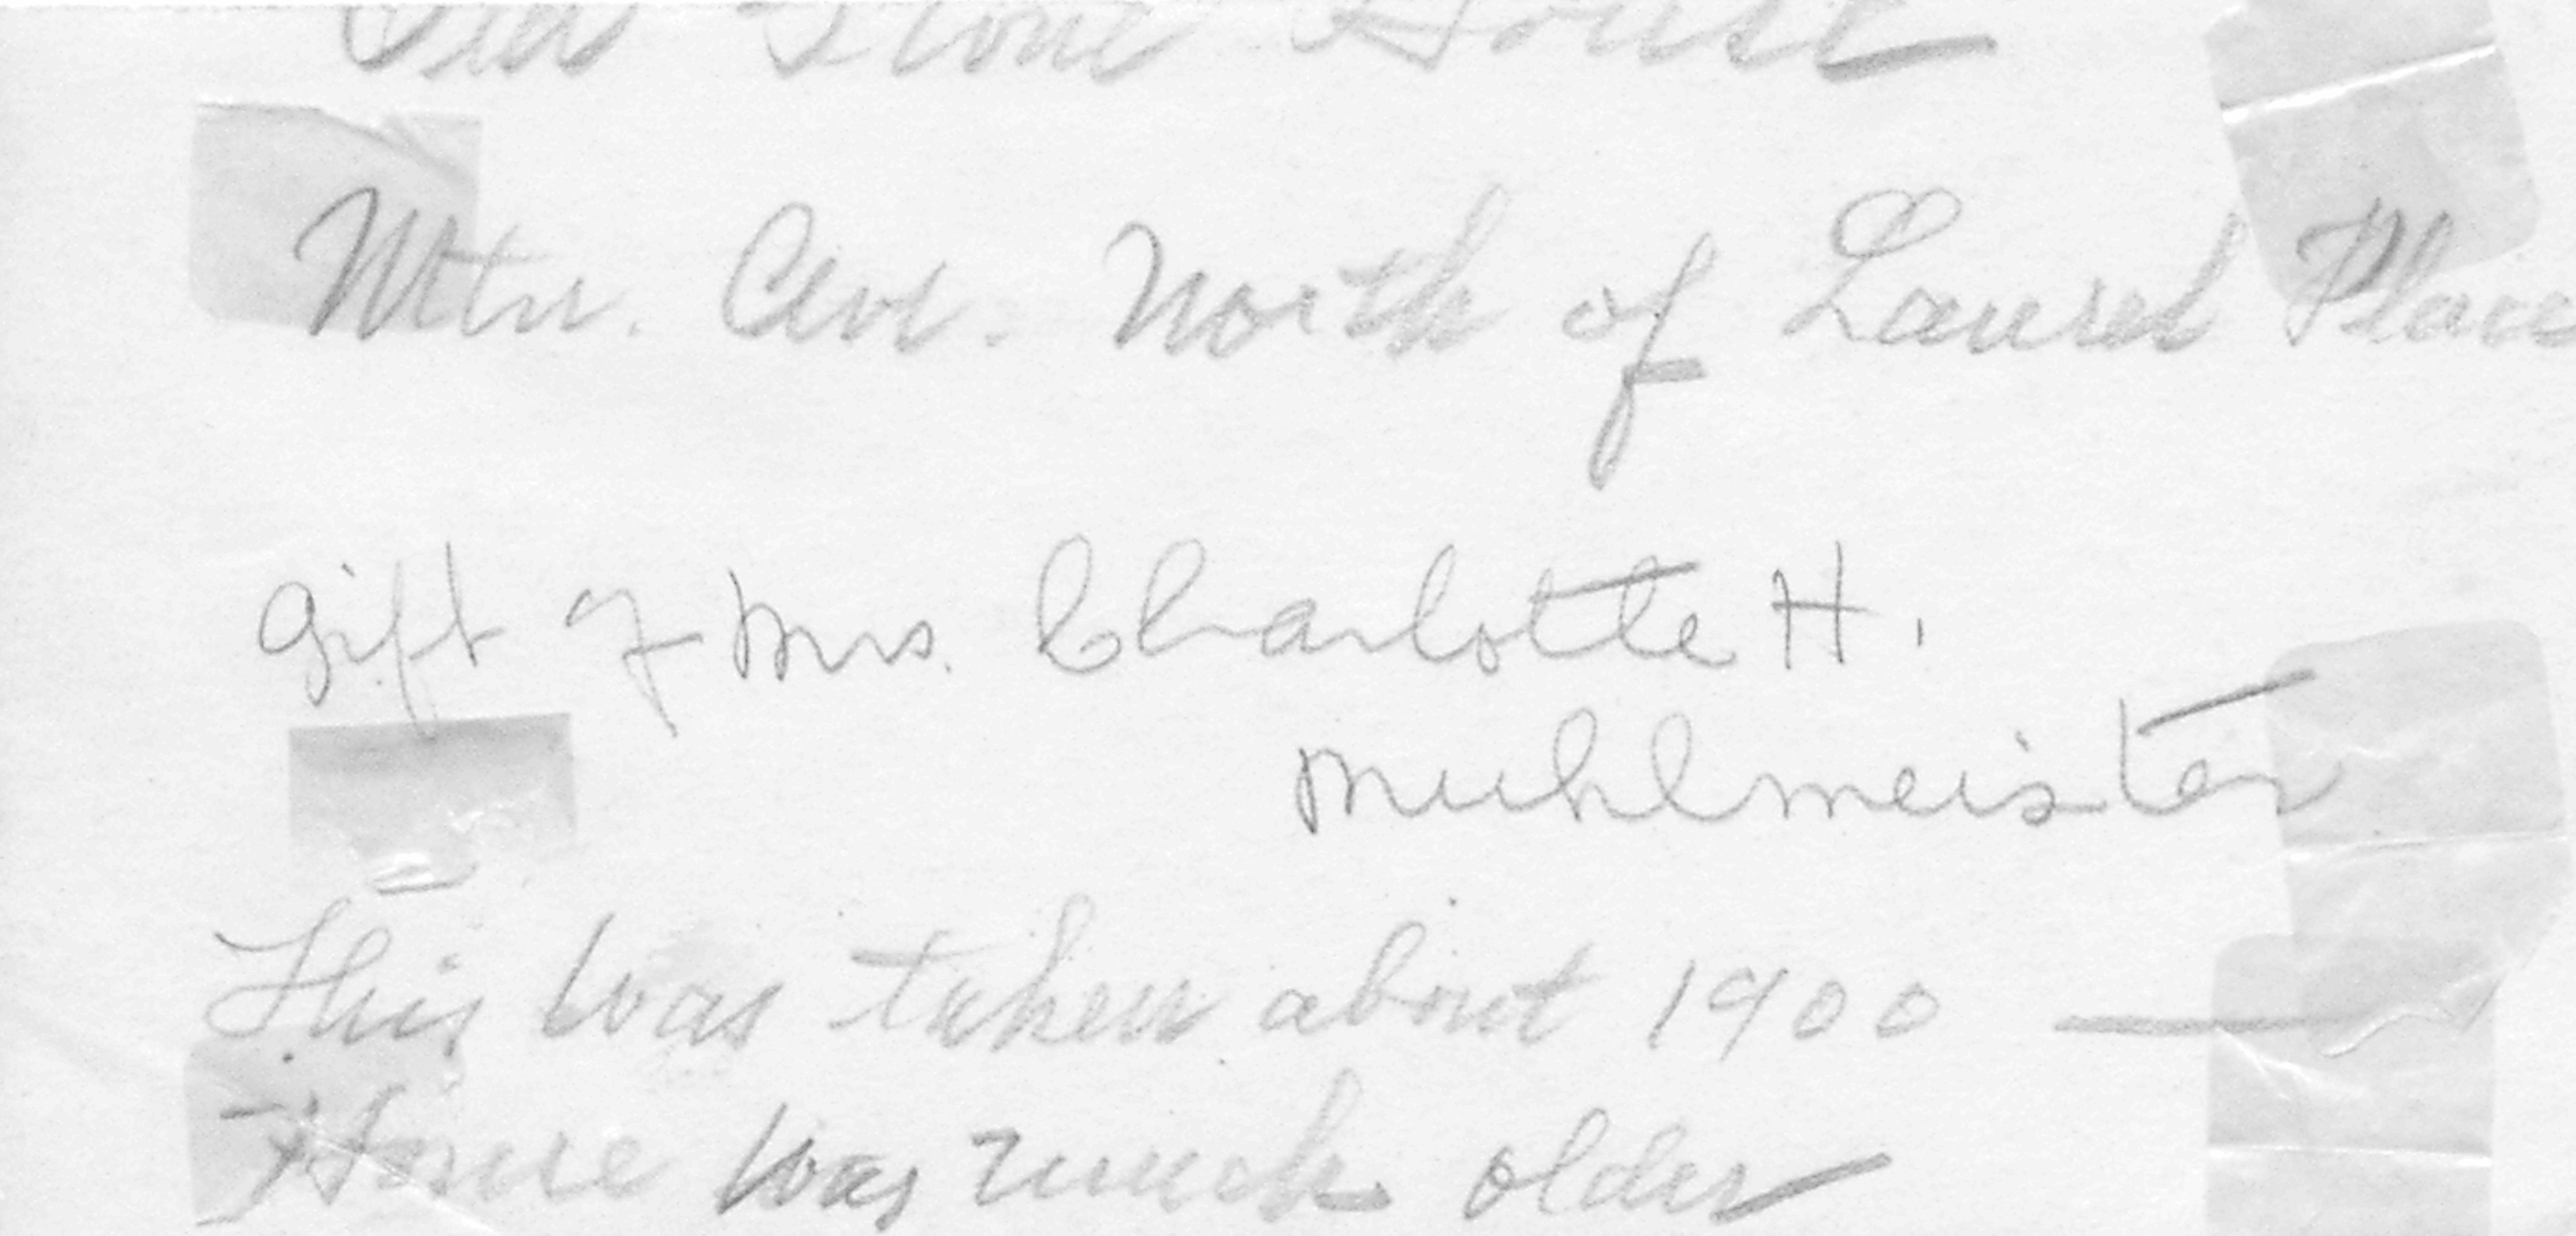 Old Stone House
Mtn. Ave. North of Laurel Place
Gift of Mrs. Charlotte H.
Muhlmeister
This was taken about 1900 —
House was much older